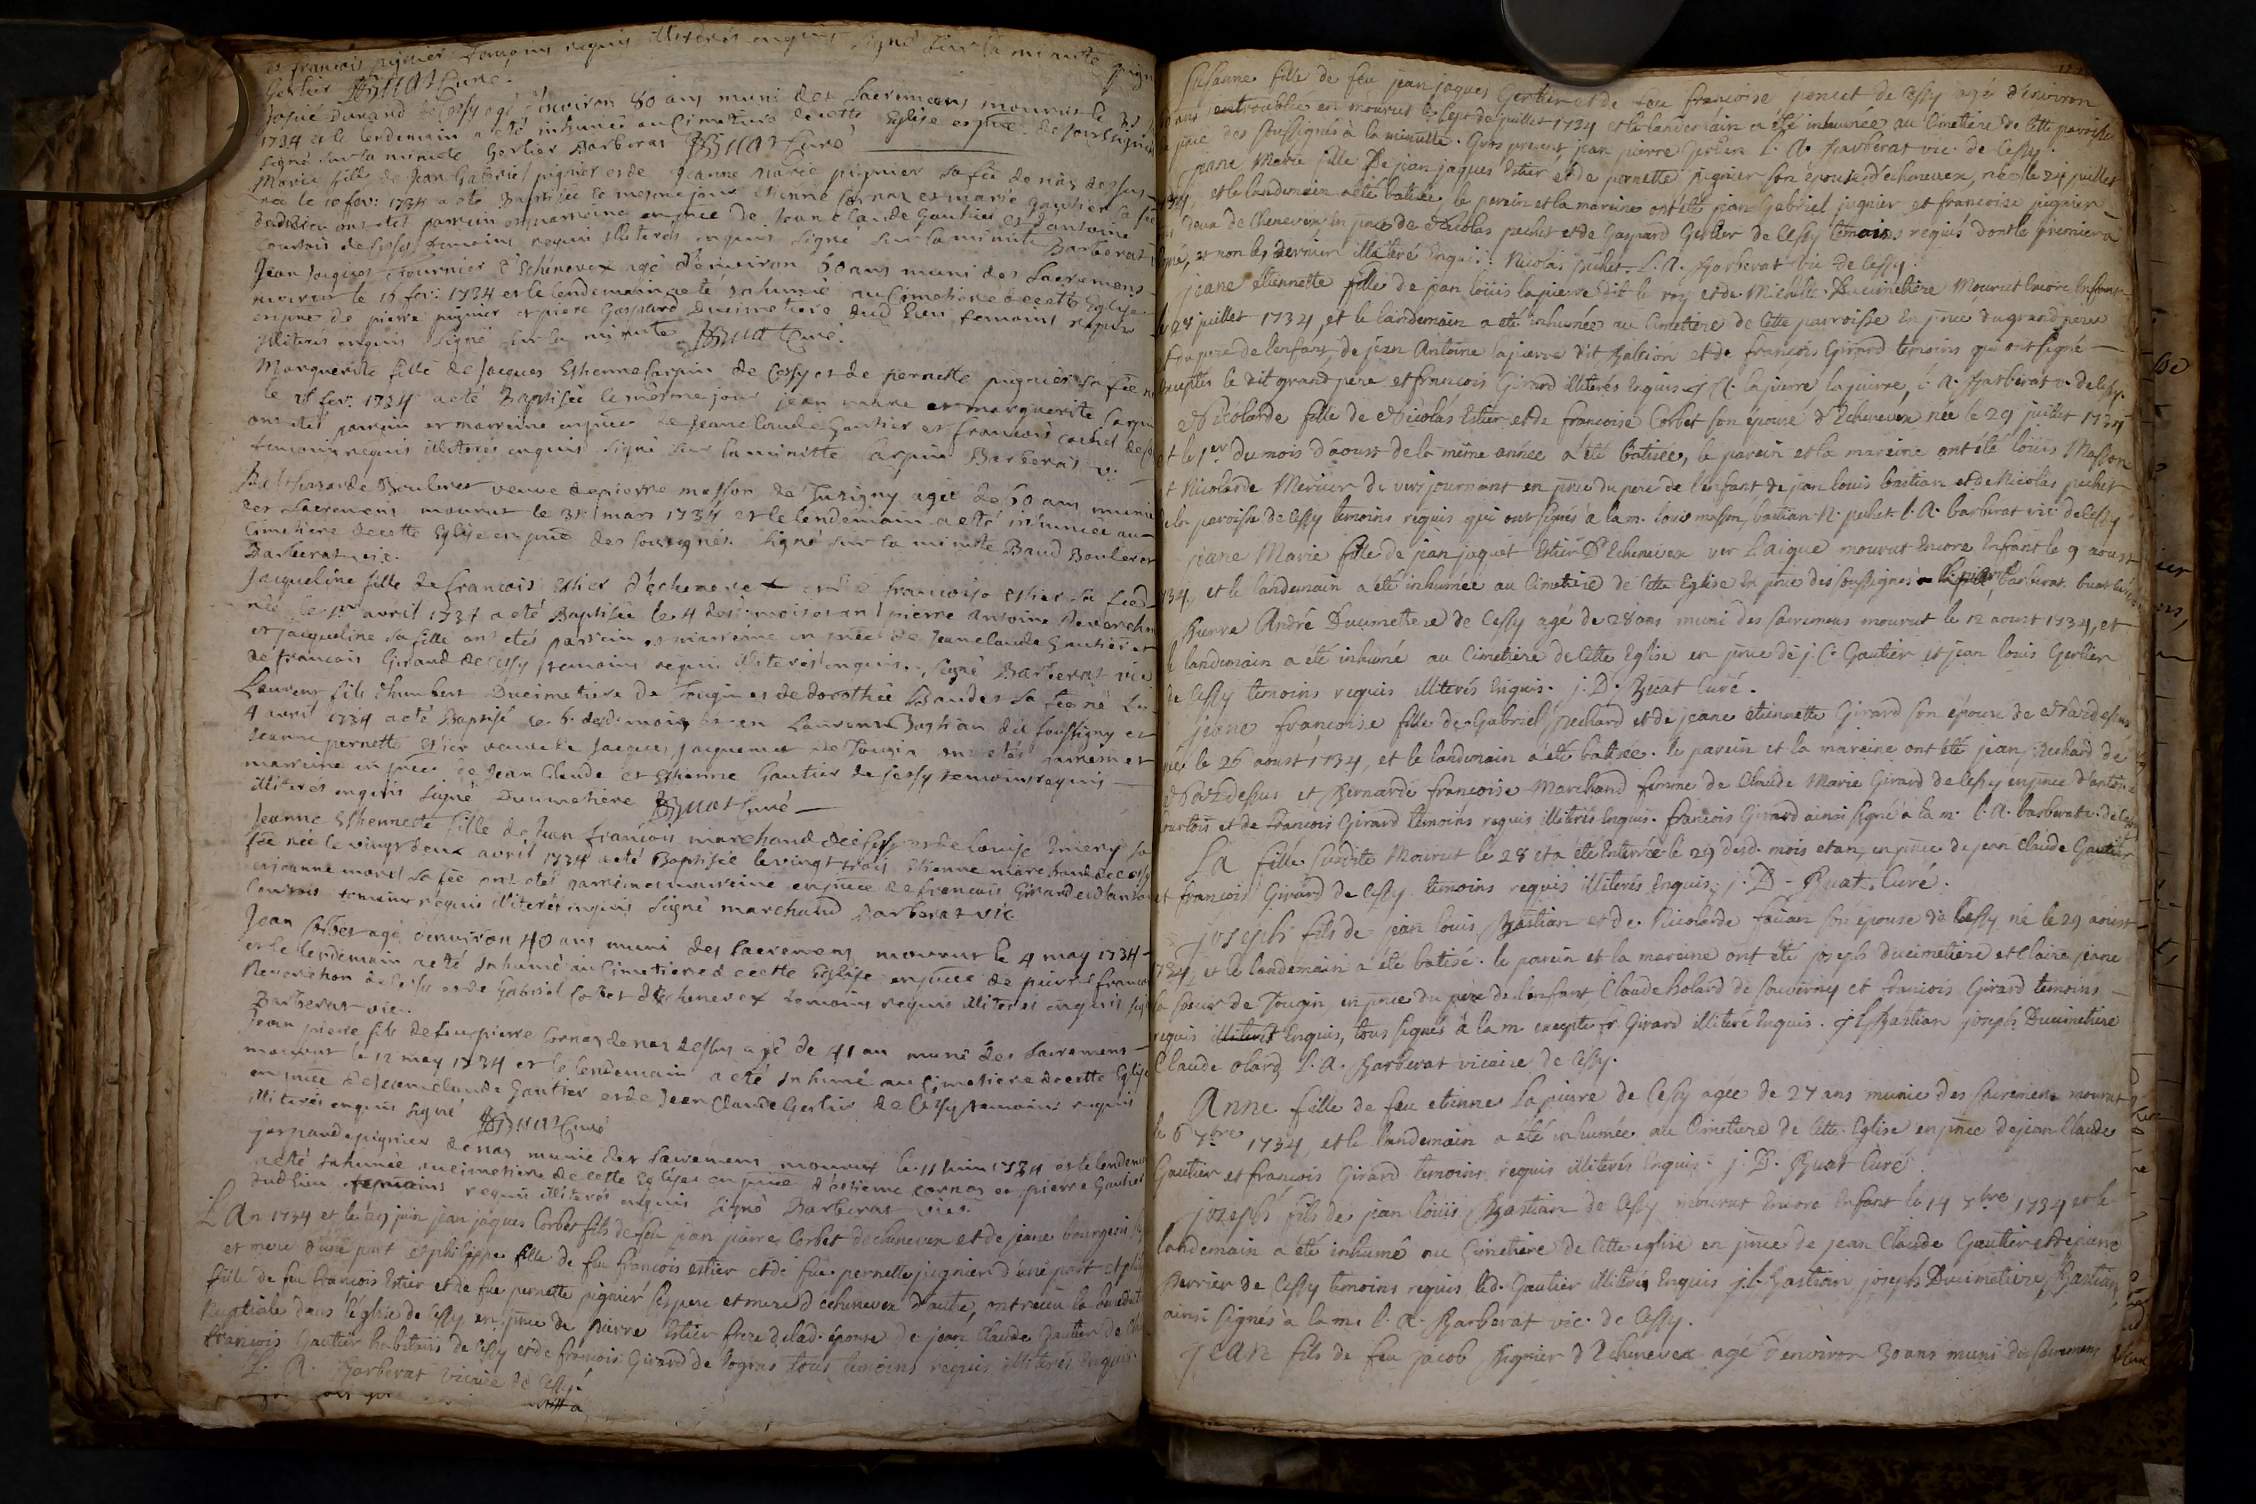 et francois pignier temoins requis illiterés enquis signé sur la minute
Gerlier JBBuat Curé.
Josué Durand de Cessy agé d'environ 80 ans muni des Sacremens mourut le
1734 et le lendemain a été inhumé au Cimetiere de cette Eglise en pnce des soussignés
signé sur la minute Gerlier Barberat JBBuat Curé
Marie fille de Jean Gabriel pignier et de Jeanne Marie pignier sa fée de naz dessus
née le 10 fevr: 1734 a eté Baptisée le mesme jour Etienne Cornaz et marie Gautier sa fée
ont etés parrain et marreine en pnce de Jean Claude Gautier et d'antoine
Courtois de Cessy temoins requis illiterés enquis signé sur la minute Barberat
Jean Jacques fournier d'Echenevex agé d'environ 60 ans muni des Sacremens
mourut le 15 fevr: 1734 et le lendemain a eté inhumé au Cimetiere de cette Eglise
en pnce de pierre pignier et pierre Gaspard Ducimetiere dud. lieu temoins requis
illiterés enquis signé sur la minute JBBuat Curé.
Marguerite fille de Jacques Etienne Carpin de Cessy et de pernette pignier sa fée
le 28 fevr. 1734 a eté Baptisée le même jour jean marc et marguerite Carpin
ont etés parrain et marreine en pnce de Jean Claude Gautier et francois
temoins requis illiterés enquis signé sur la minute Carpin Barberat v.
Boulmer veuve de pierre masson de Turigny agée de 60 ans munie
des Sacremens mourut le 31 mars 1734 et le lendemain a eté inhumée au
Cimetiere de cette Eglise en pnce des soussignés. Signé sur la minute Baud
Barberat vic.
Jacqueline fille de francois Estier d'echenevex et de francoise Estier sa fée
née le 1er avril 1734 a eté Baptisée le 4 des. mois et an pierre Antoine Reverchon
et jacqueline sa fille ont etés parrain et marreine en pnce de Jean Claude Gautier et
de francois Girard de Cessy temoins requis illiterés enquis. signé Barberat vic
Laurent fils d'humbert Ducimetiere de Tougin et de dorothée Baudet sa fée né le
4 avril 1734 a eté Baptisé le 5 desd. mois et an Laurent Bastian dit soussigny et
Jeanne pernette Estier veuve de Jacques Jaquemet de Tougin ont etés parrein et
marreine en pnce de Jean Claude et Etienne Gautier de Cessy temoins requis
illiterés enquis signé Ducimetiere JBBuat Curé
Jeanne Ethennette fille de Jean francois marchand de Cessy et de Louise Emery sa
fée née le vingt deux avril 1734 a eté Baptisée le vingt trois Etienne marchand de Cessy
et jeanne morel sa fée ont etés parrein et marreine en pnce de francois Girard et d'antoine
Courtois temoins requis illiterés enquis signé marchand Barberat vic
Jean Corbet agé d'environ 40 ans muni des sacremens mourut le 4 may 1734
et le lendemain a eté inhumé au Cimetiere de cette Eglise en pnce de pierre francois
Reverchon de Cessy et de Gabriel Corbet d'Echenevex temoins requis illiterés enquis signé
Barberat vic.
Jean pierre fils de feu pierre Cornaz de naz dessus agé de 41 an muni des Sacremens
mourut le 12 may 1734 et le lendemain a eté inhumé au Cimetiere de cette Eglise
en pnce de Jean Claude Gautier et de Jean Claude Gerlier de Cessy temoins requis
illiterés enquis signé JBBuat Curé
pernande pignier de naz munie des Sacremens mourut le 11 juin 1734 et le lendemain
a eté inhumée au cimetiere de cette Eglise en pnce d'estienne cornaz et pierre Gautier
dud. lieu temoins requis illiterés enquis signé Barberat vic.
L'an 1734 et le 29 juin jean jaques Corbet fils de feu jean pierre Corbet d'echenevex et de jeane bourgeois
et mere d'une part et philippe fille de feu francois estier et de fue pernette pignier d'une part et
fille de feu francois Estier et de fue pernette pignier ses pere et mere d'echenevex d'autre, ont recu la benedict
Nuptiale dans l'eglise de Cessy en pnce de Pierre Estier frere de lad. épouse de jean Claude Gautier de
francois Gautier habitans de Cessy et de francois Girard de Segras tous temoins requis illiterés Enquis
L. A. Barberat vicaire de Cessy.
Susanne fille de feu jean jaques Gerlier et de feue francoise poncet de Cessy agé d'environ
ans mourut le sept de juillet 1734 et le landemain a été inhumée au Cimetiere de cette parroisse
pnce des soussignés à la minutte. Gros present jean pierre Gerlier L. A. Barberat vic. de Cessy.
jeane Marie fille De jean jaques Estier et de pernette pignier son épouse d'echenevex, née le 24 juillet
1734, et le landemain a été batisée, le parein et la mareine ont été jean Gabriel pignier et francoise pignier
deux de Chenevex, en pnce de Nicolas pechet et de Gaspard Gerlier de Cessy temoins requis dont le premier a
signé, et non les dernier illiteré Enquis: Nicolas Pechet. L. A. Barberat vic de Cessy.
jeane etiennette fille de jean loüis lapierre dit le roy et de Michelle Ducimetiere Mourut Encore Enfant
le 28 juillet 1734, et le landemain a été inhumée au Cimetiere de Cette parroisse En pnce du grand pere
du pere de l'enfant de jean Antoine lapierre dit Galsion et de francois Girard temoins qui ont signé
exceptés le dit grand pere et francois Girard illiterés Enquis J. A. lapierre lapierre, L. A. Barberat v. de Cessy.
Nicolarde fille de Nicolas Estier et de francoise Corbet son épouse d'Echenevex née le 29 juillet 1734
et le 1er du mois d'aoust de la même année a été batisée, le parein et la mareine ont été loüis Masson
et Nicolarde Mercier de versjournant en pnce du pere de l'enfant de jean louis bastian et de Nicolas pechet
de la paroisse de Cessy temoins requis qui ont signés à la m. louis masson, bastian N. pechet L. A. barberat vic. de Cessy
jeane Marie fille de jean jaquet Estier D'Echenevex ver L'aigue mourut Encore Enfant le 9 aoust
1734, et le landemain a été inhumée au Cimetiere de Cette Eglise En pnce des soussignés Barberat. buat Curé
Pierre André Ducimettiere de Cessy agé de 28 ans muni des sacremens mourut le 12 aoust 1734, et
le landemain a été inhumé au Cimetiere de Cette Eglise en pnce de j. C. Gautier et jean louis Gerlier
de Cessy temoins requis illiterés Enquis. j. B. Buat Curé.
jeane francoise fille de Gabriel Pechard et de jeane etiennette Girard son épouse de Nazdessus
née le 26 aoust 1734, et le landemain a été batisée. le parein et la mareine ont été jean Pechard de
Nazdessus et Bernarde francoise Marchand femme de Claude Marie Girard de Cessy en pnce d'antoine
Courtois et de francois Girard temoins requis illiterés Enquis. francois Girard ainsi signé à la m. L. A. barberat v. de Cessy
La fille susdite Mourut le 28 et a été Enterrée le 29 desd. mois et an, en pnce de jean Claude Gautier
et francois Girard de Cessy temoins requis illiterés Enquis. j. B. Buat. Curé.
joseph fils de jean louis Bastian et de Nicolarde son épouse de Cessy né le 29 aoust
1734, et le landemain a été batisé. le parein et la mareine ont été joseph ducimetiere et Claire jeane
la soeur de Tougin, en pnce du pere de l'enfant, Claude holard de Sauverny et francois Girard temoins
requis illiterés Enquis, tous signés à la m. excepté fr Girard illiteré Enquis. J L Bastian joseph Ducimetiere
Claude olard L. A. Barberat vicaire de Cessy.
Anne fille de feu etienne Lapierre de Cessy agée de 27 ans munie des sacremens mourut
le 6 7bre 1734, et le landemain a été inhumée au Cimetiere de Cette Eglise en pnce de jean Claude
Gautier et francois Girard temoins requis illiterés Enquis. j. B. Buat Curé.
joseph fils de jean loüis Bastian de Cessy mourut Encore Enfant le 14 7bre 1734 et le
landemain a été inhumé au Cimetiere de Cette eglise en pnce de jean Claude Gautier et de jeane
Perrier de Cessy temoins requis led. Gautier illiterés Enquis j. l. Bastian joseph Ducimetiere, Bastian
ainsi signés à la m. L. A. Barberat vic. de Cessy.
JEAN fils de feu jacob Pignier d'Echenevex agé d'environ 30 ans muni des sacremens